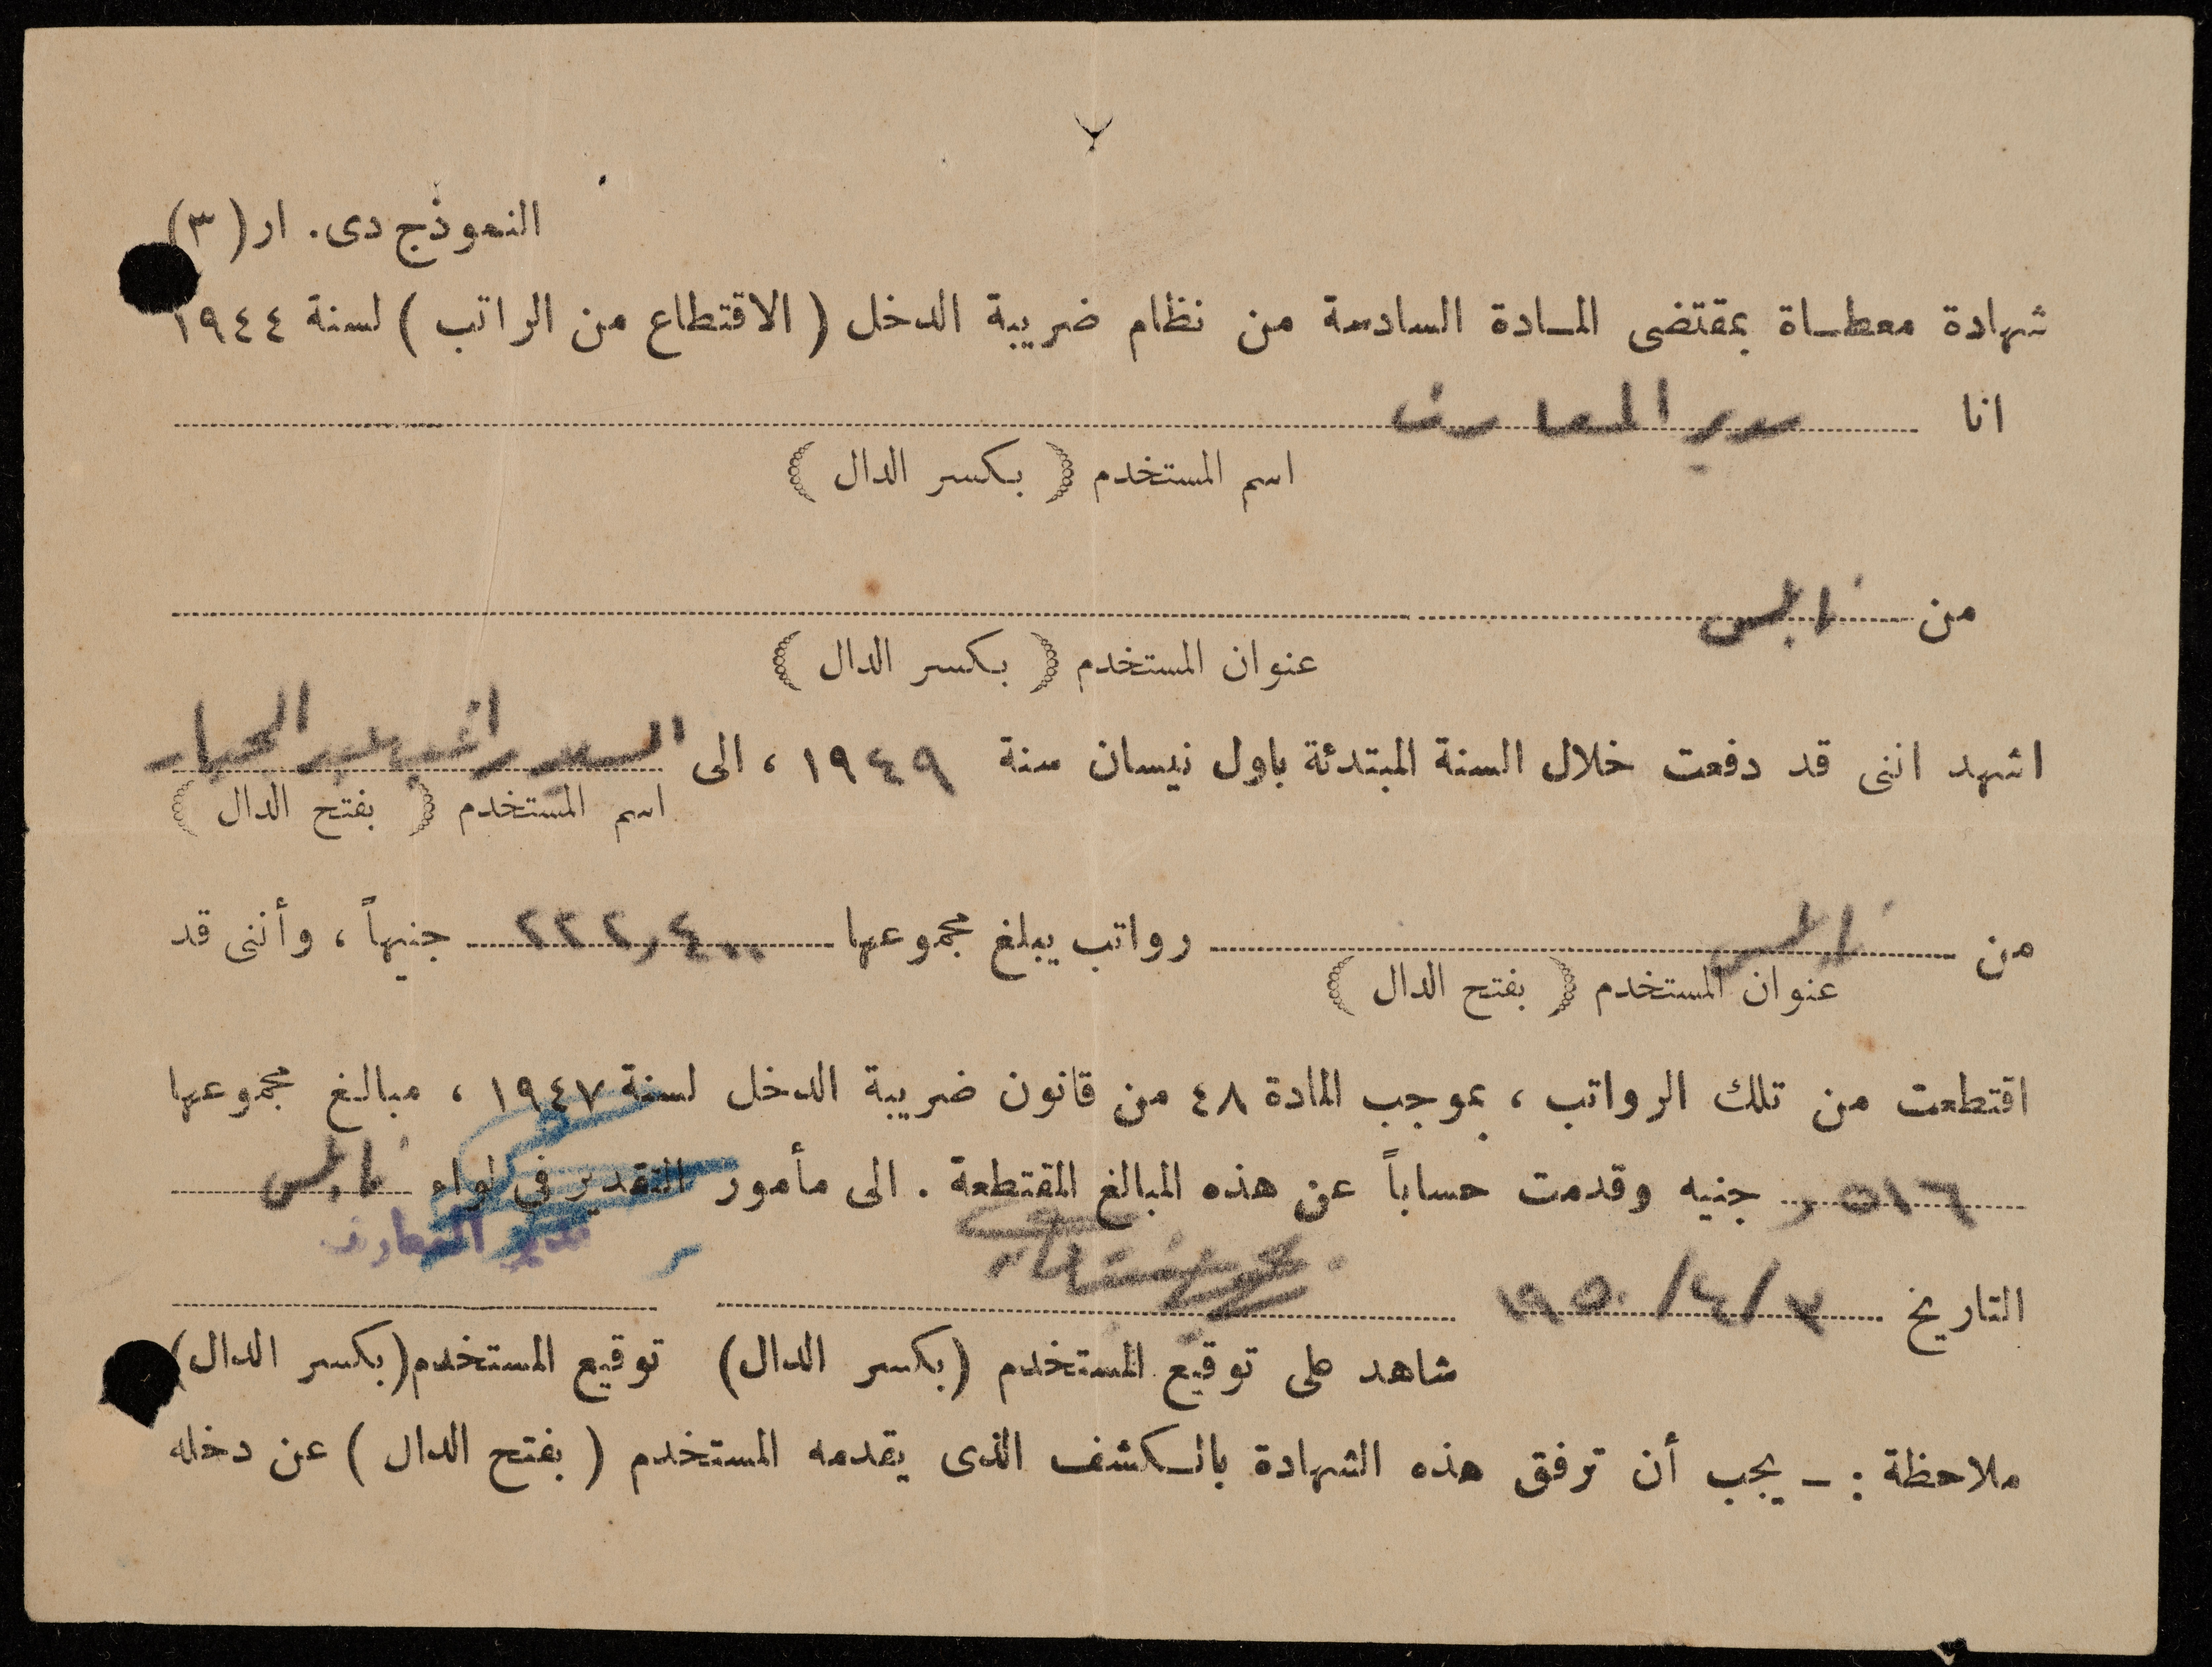 النموذج دى. ار (٣)
شهادة معطاة بمقتضى المادة السادسة من نظام ضريبة الدخل ( الاقتطاع من الراتب ) لسنة ١٩٤٤
انا مدير المعارف
اسم المستخدم ( بكسر الدال )
من نابلس
عنوان المستخدم ( بكسر الدال )
اشهد اننى قد دفعت خلال السنة المبتدئة باول نيسان سنة ١٩٤٩ ، الى السيد راغب عبد الجبار
اسم المستخدم ( بفتح الدال )
من نابلس رواتب يبلغ مجموعها ٢٢٢٫٤٠٠ جنيهاً ، وأننى قد
عنوان المستخدم ( بفتح الدال )
اقتطعت من تلك الرواتب ، بموجب المادة ٤٨ من قانون ضريبة الدخل لسنة ١٩٤٧ ، مبالغ مجموعها
٥١٦ر جنيه وقدمت حساباً عن هذه المبالغ المقتطعة . الى مأمور التقدير فى لواء نابلس
مدير المعارف
التاريخ ٣/٤/١٩٥٠
شاهد على توقيع المستخدم (بكسر الدال) توقيع المستخدم (بكسر الدال)
ملاحظة : ـ يجب أن ترفق هذه الشهادة بالكشف الذى يقدمه المستخدم ( بفتح الدال ) عن دخله